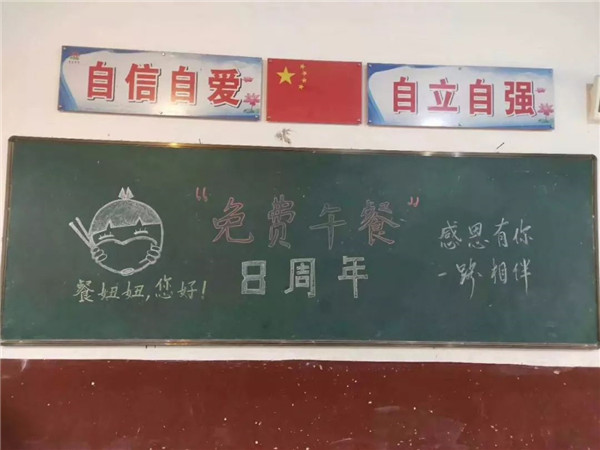 自信自爱
自立自强
"免费午餐"
8周年
餐妞妞,您好!
感恩有你
一路相伴